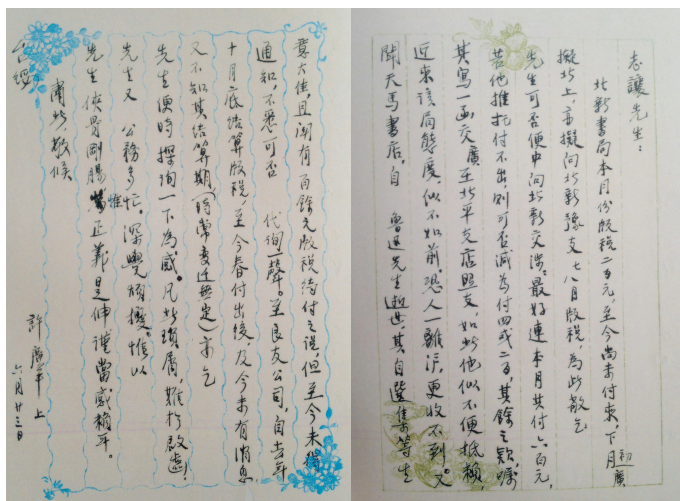 志讓先生：
北新書局本月份版税二百元，至今尚未付來，下月初廣
擬北上，亦擬向北新豫支七八月版税，為此敬乞
先生可否便中向北新交涉，最好連本月共付六百元，
若他推托付不出，則可否減為付四或二百，其餘之款囑
其寫一函交廣至北平支店照支，如此他似不便抵賴
近來該局態度，似不如前，恐人一離滬，更收不到。又
聞天馬書店，自 魯迅先生逝世，其自選集等生
意大佳，且聞有百餘元版税待付之説，但至今未得
通知，不悉可否 代詢一聲。至良友公司，自去年
十月底结算版税，至今春付出後，及今未有消息
又不知其结算期（時常變遷無定）亦乞
先生便時探詢一下為感。凡此瑣屑，難於啟齒！
先生又 公務多忙。深覺煩擾。惟以
先生俠骨剛腸，惟正義是伸，謹當感賴耳。
肅此，敬候
台綏
許廣平 上
六月廿三日